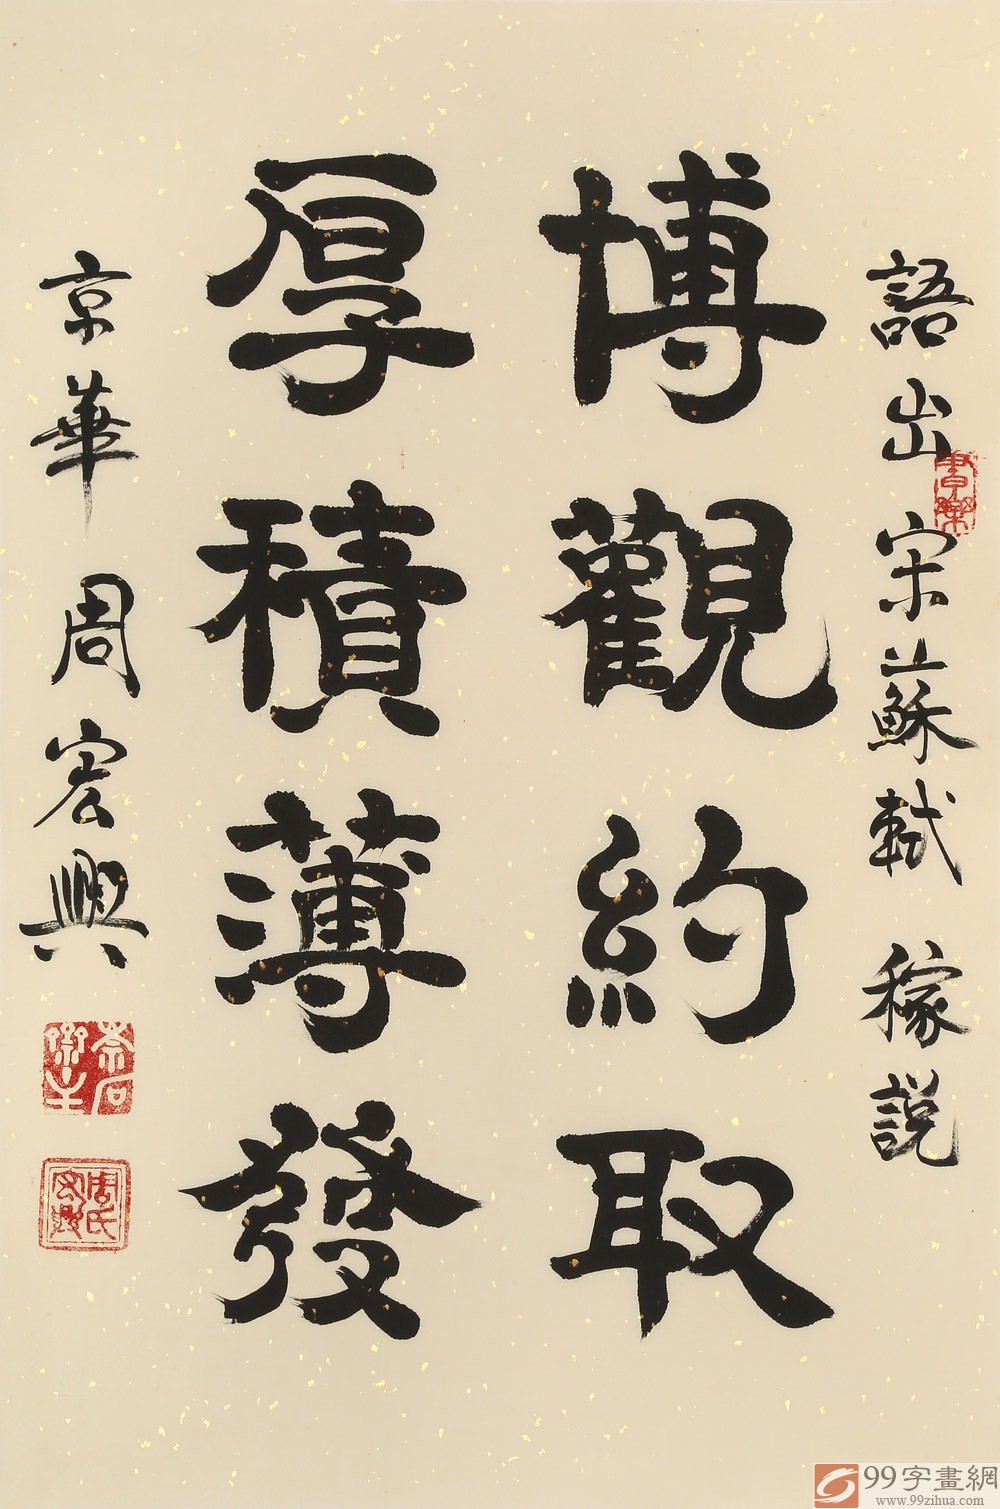 語出宋蘇軾稼説
博觀約取
厚積薄發
京華周宏興
周氏宏興
99字畫網
www.99zihua.com